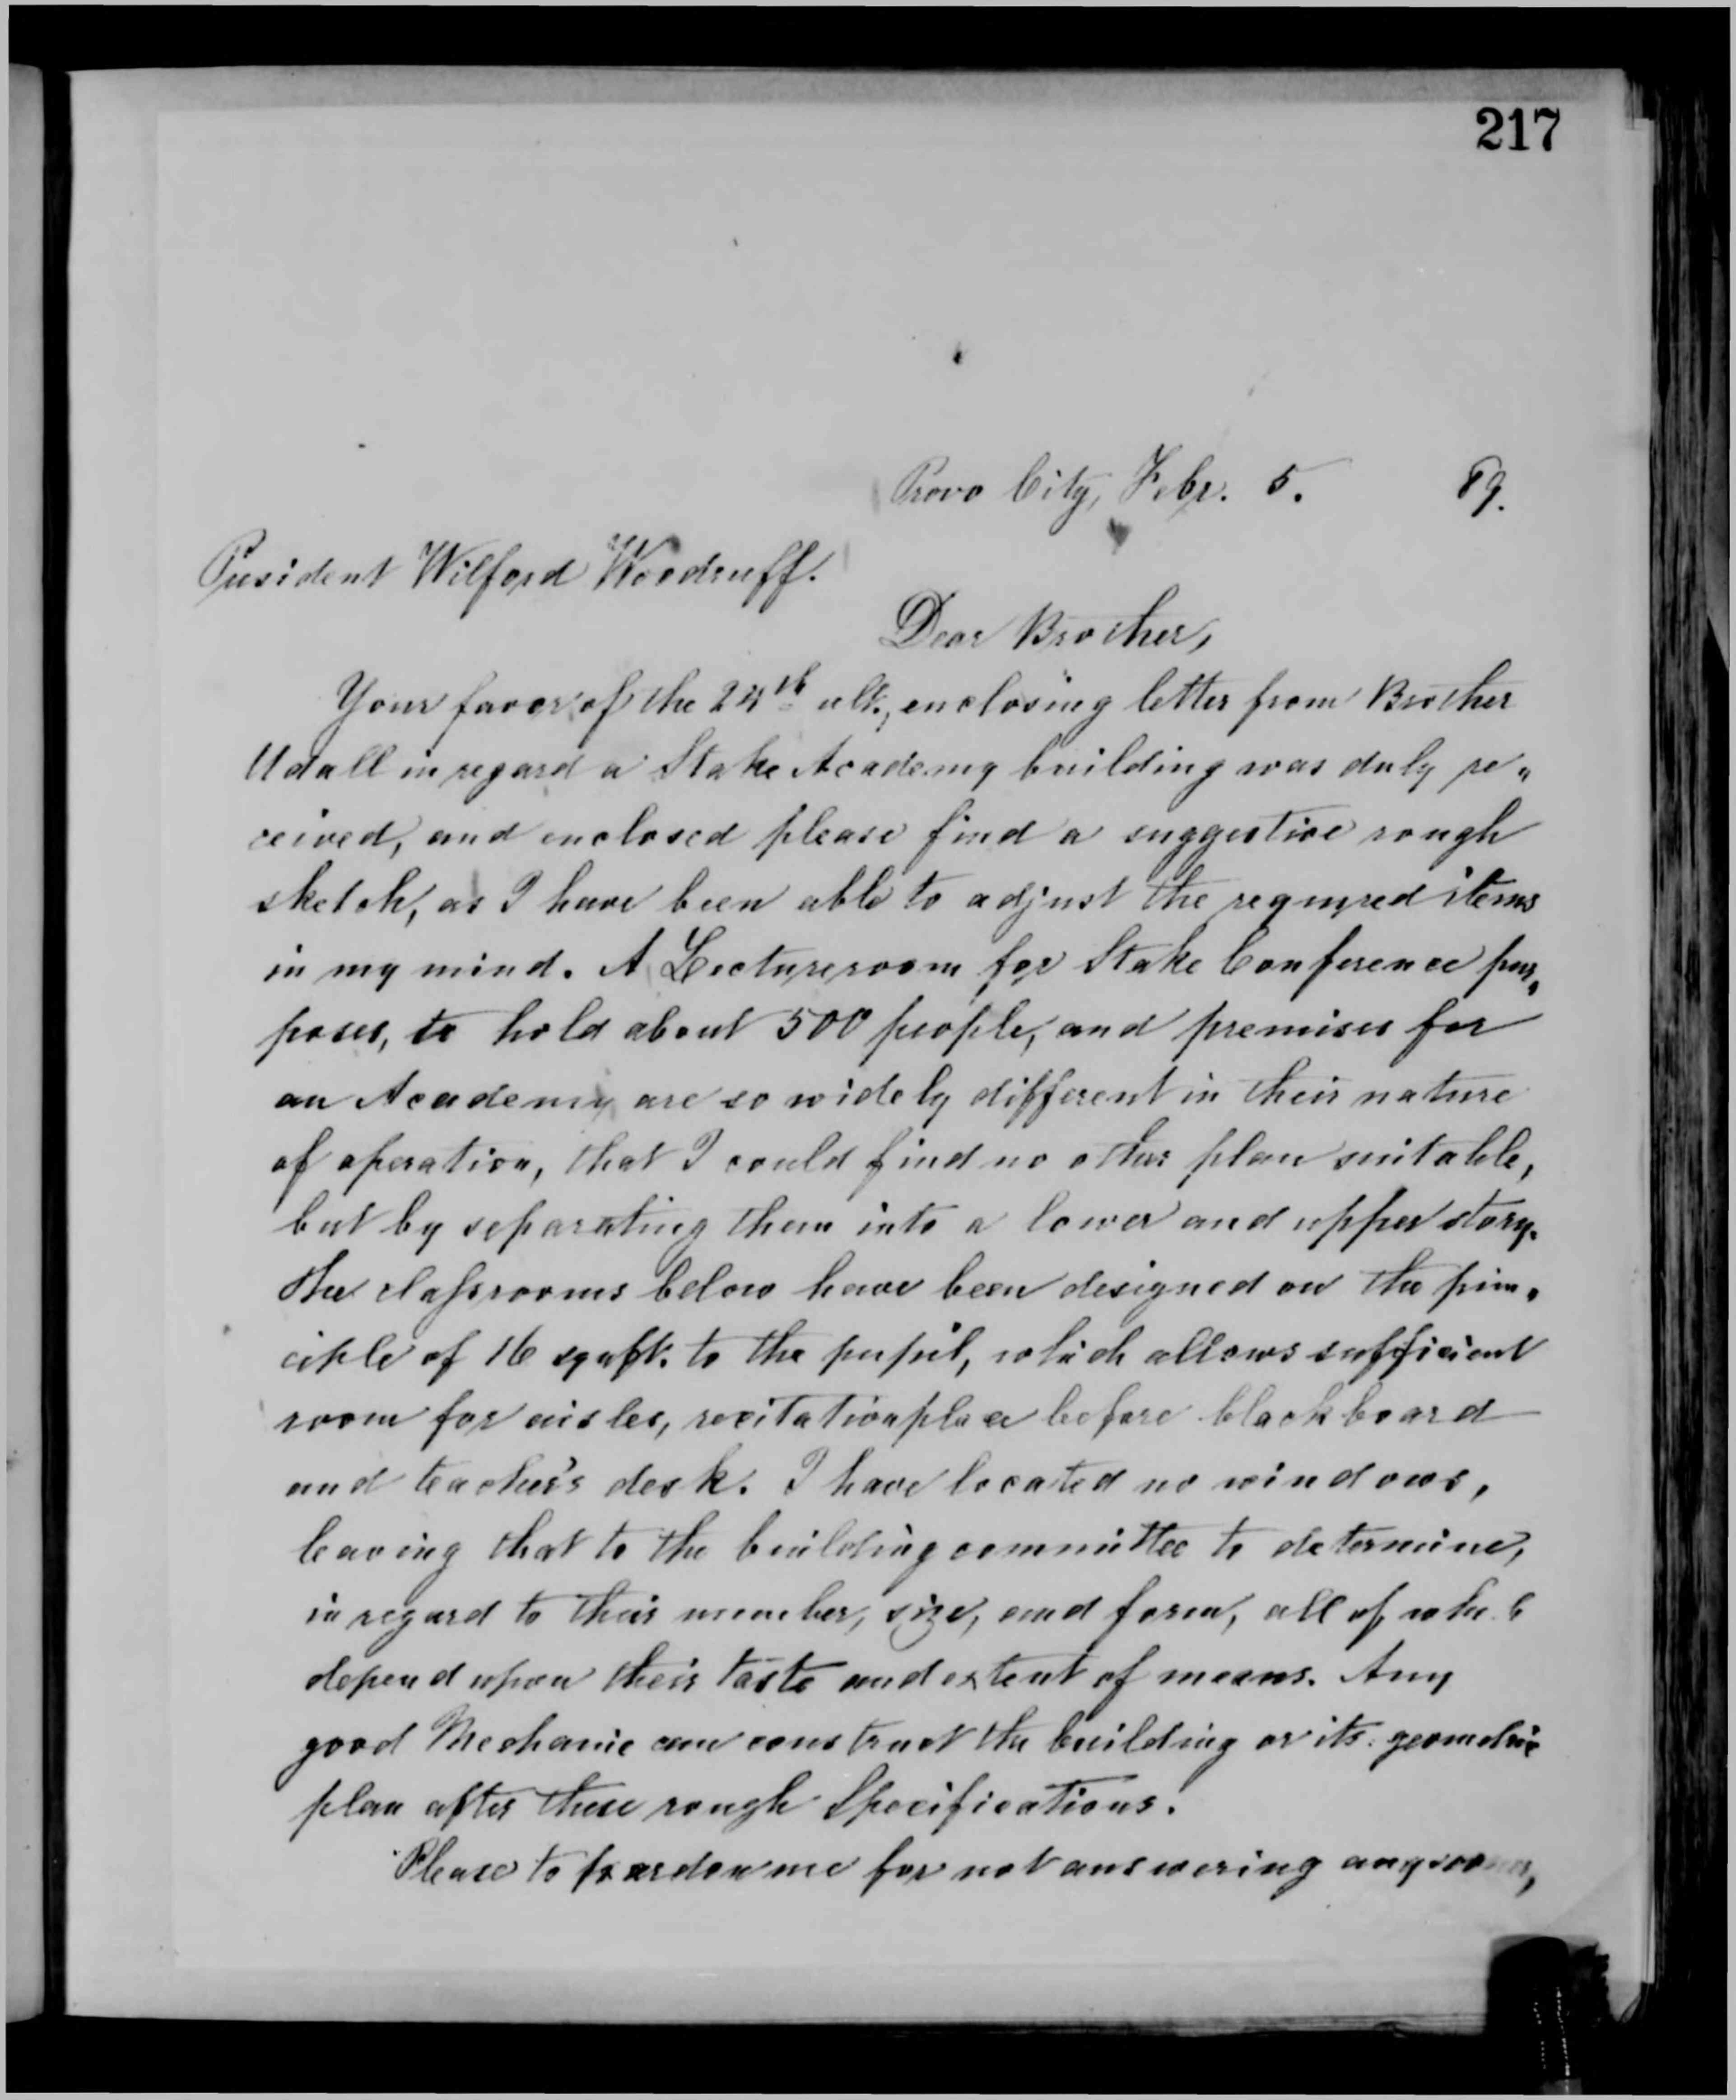 217
Provo City, Febr. 5. 89.
President Wilford Woodruff.
Dear Brother,
Your favor of the 24th ult., enclosing letter from Brother
Udall in regard a Stake Academy building was duly re-
ceived, and enclosed please find a suggestive rough
sketch, as I have been able to adjust the requyred items
in my mind. A Lectureroom for Stake Conference pur-
poses, to hold about 500 people, and premises for
an Academy are so widely different in their nature
of operation, that I could find no other plan suitable,
but by separating them into a lower and upper story.
The classrooms below have been designed on the prin-
ciple of 16 squft. to the pupil, which allows sufficient
room for aisles, recitationplace before blackboard
and teacher's desk. I have located no windows,
leaving that to the buildingcommittee to determine,
in regard to their number, size, and form, all of which
depend upon their taste and extent of means. Any
good Mechanic can construct the building or its geometric
plan after these rough Specifications.
Please to pardon me for not answering any sooner,